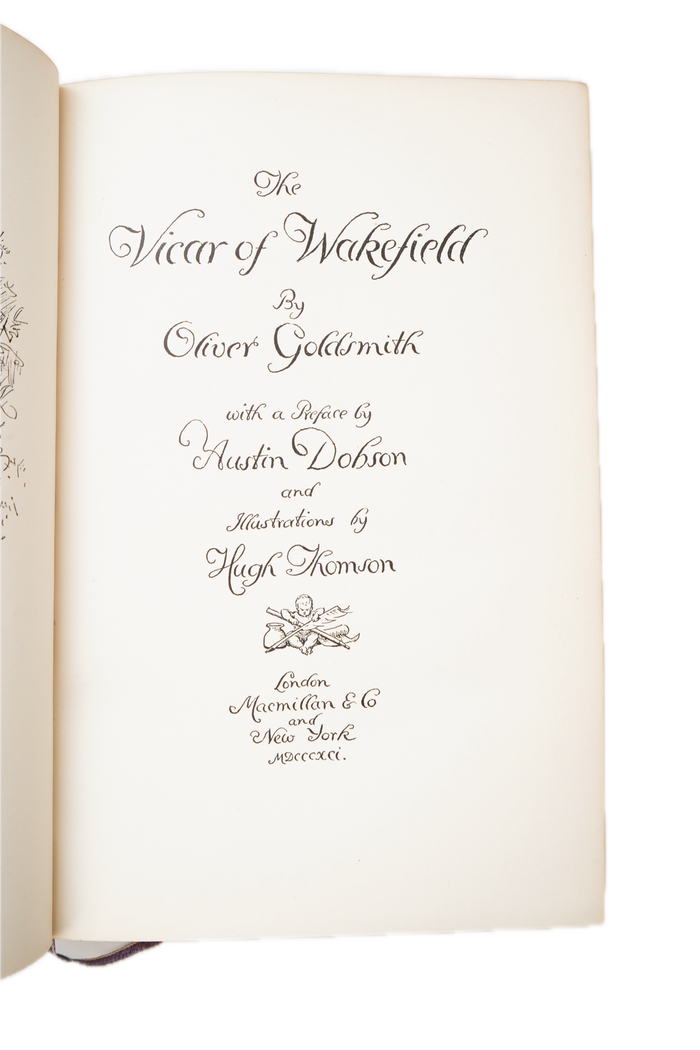 The
Vicar of Wakefield
By
Oliver Goldsmith
with a Preface by
Austin Dobson
and
Illustrations by
Hugh Thomson
London
Macmillan & Co
and
New York
MDCCCXCI.